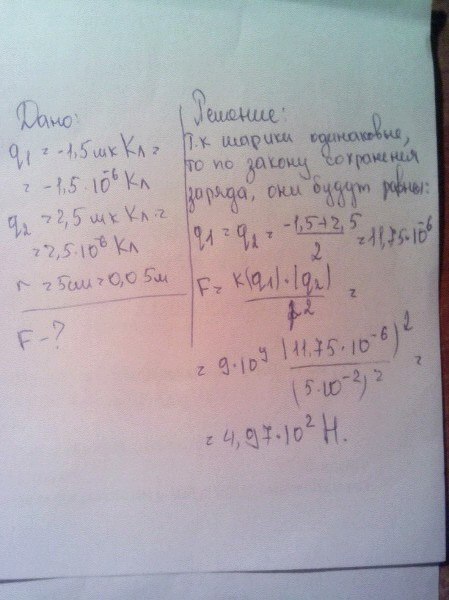 Дано:
q1 = -1,5 мк Кл =
= -1,5 · 10^-6 Кл
q2 = 2,5 мк Кл =
= 2,5 · 10^-6 Кл
r = 5см = 0,05м
F - ?
Решение:
Т.к шарики одинаковые,
то по закону сохранения
заряда, они будут равны:
q1 = q2 = (-1,5+2,5)/2 = 11,75·10^-6
F = k(q1)·|q2|/r^2 =
= 9·10^9 |11,75·10^-6)^2/(5·10^-2)^2 =
= 4,97·10^2 Н.